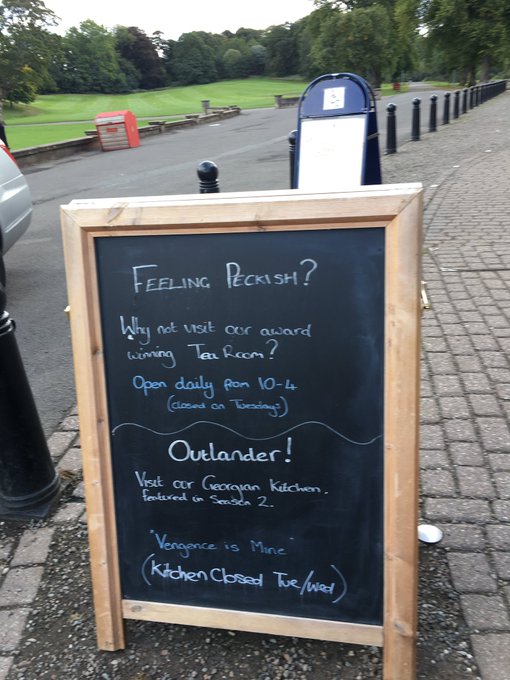 FEELING PECKISH?
Why not visit our award
winning Tea Room?
Open daily from 10-4
(closed on Tuesdays)
Outlander!
Visit our Georgian Kitchen.
featured in Season 2.
"Vengence is Mine"
(Kitchen Closed Tue/Wed)